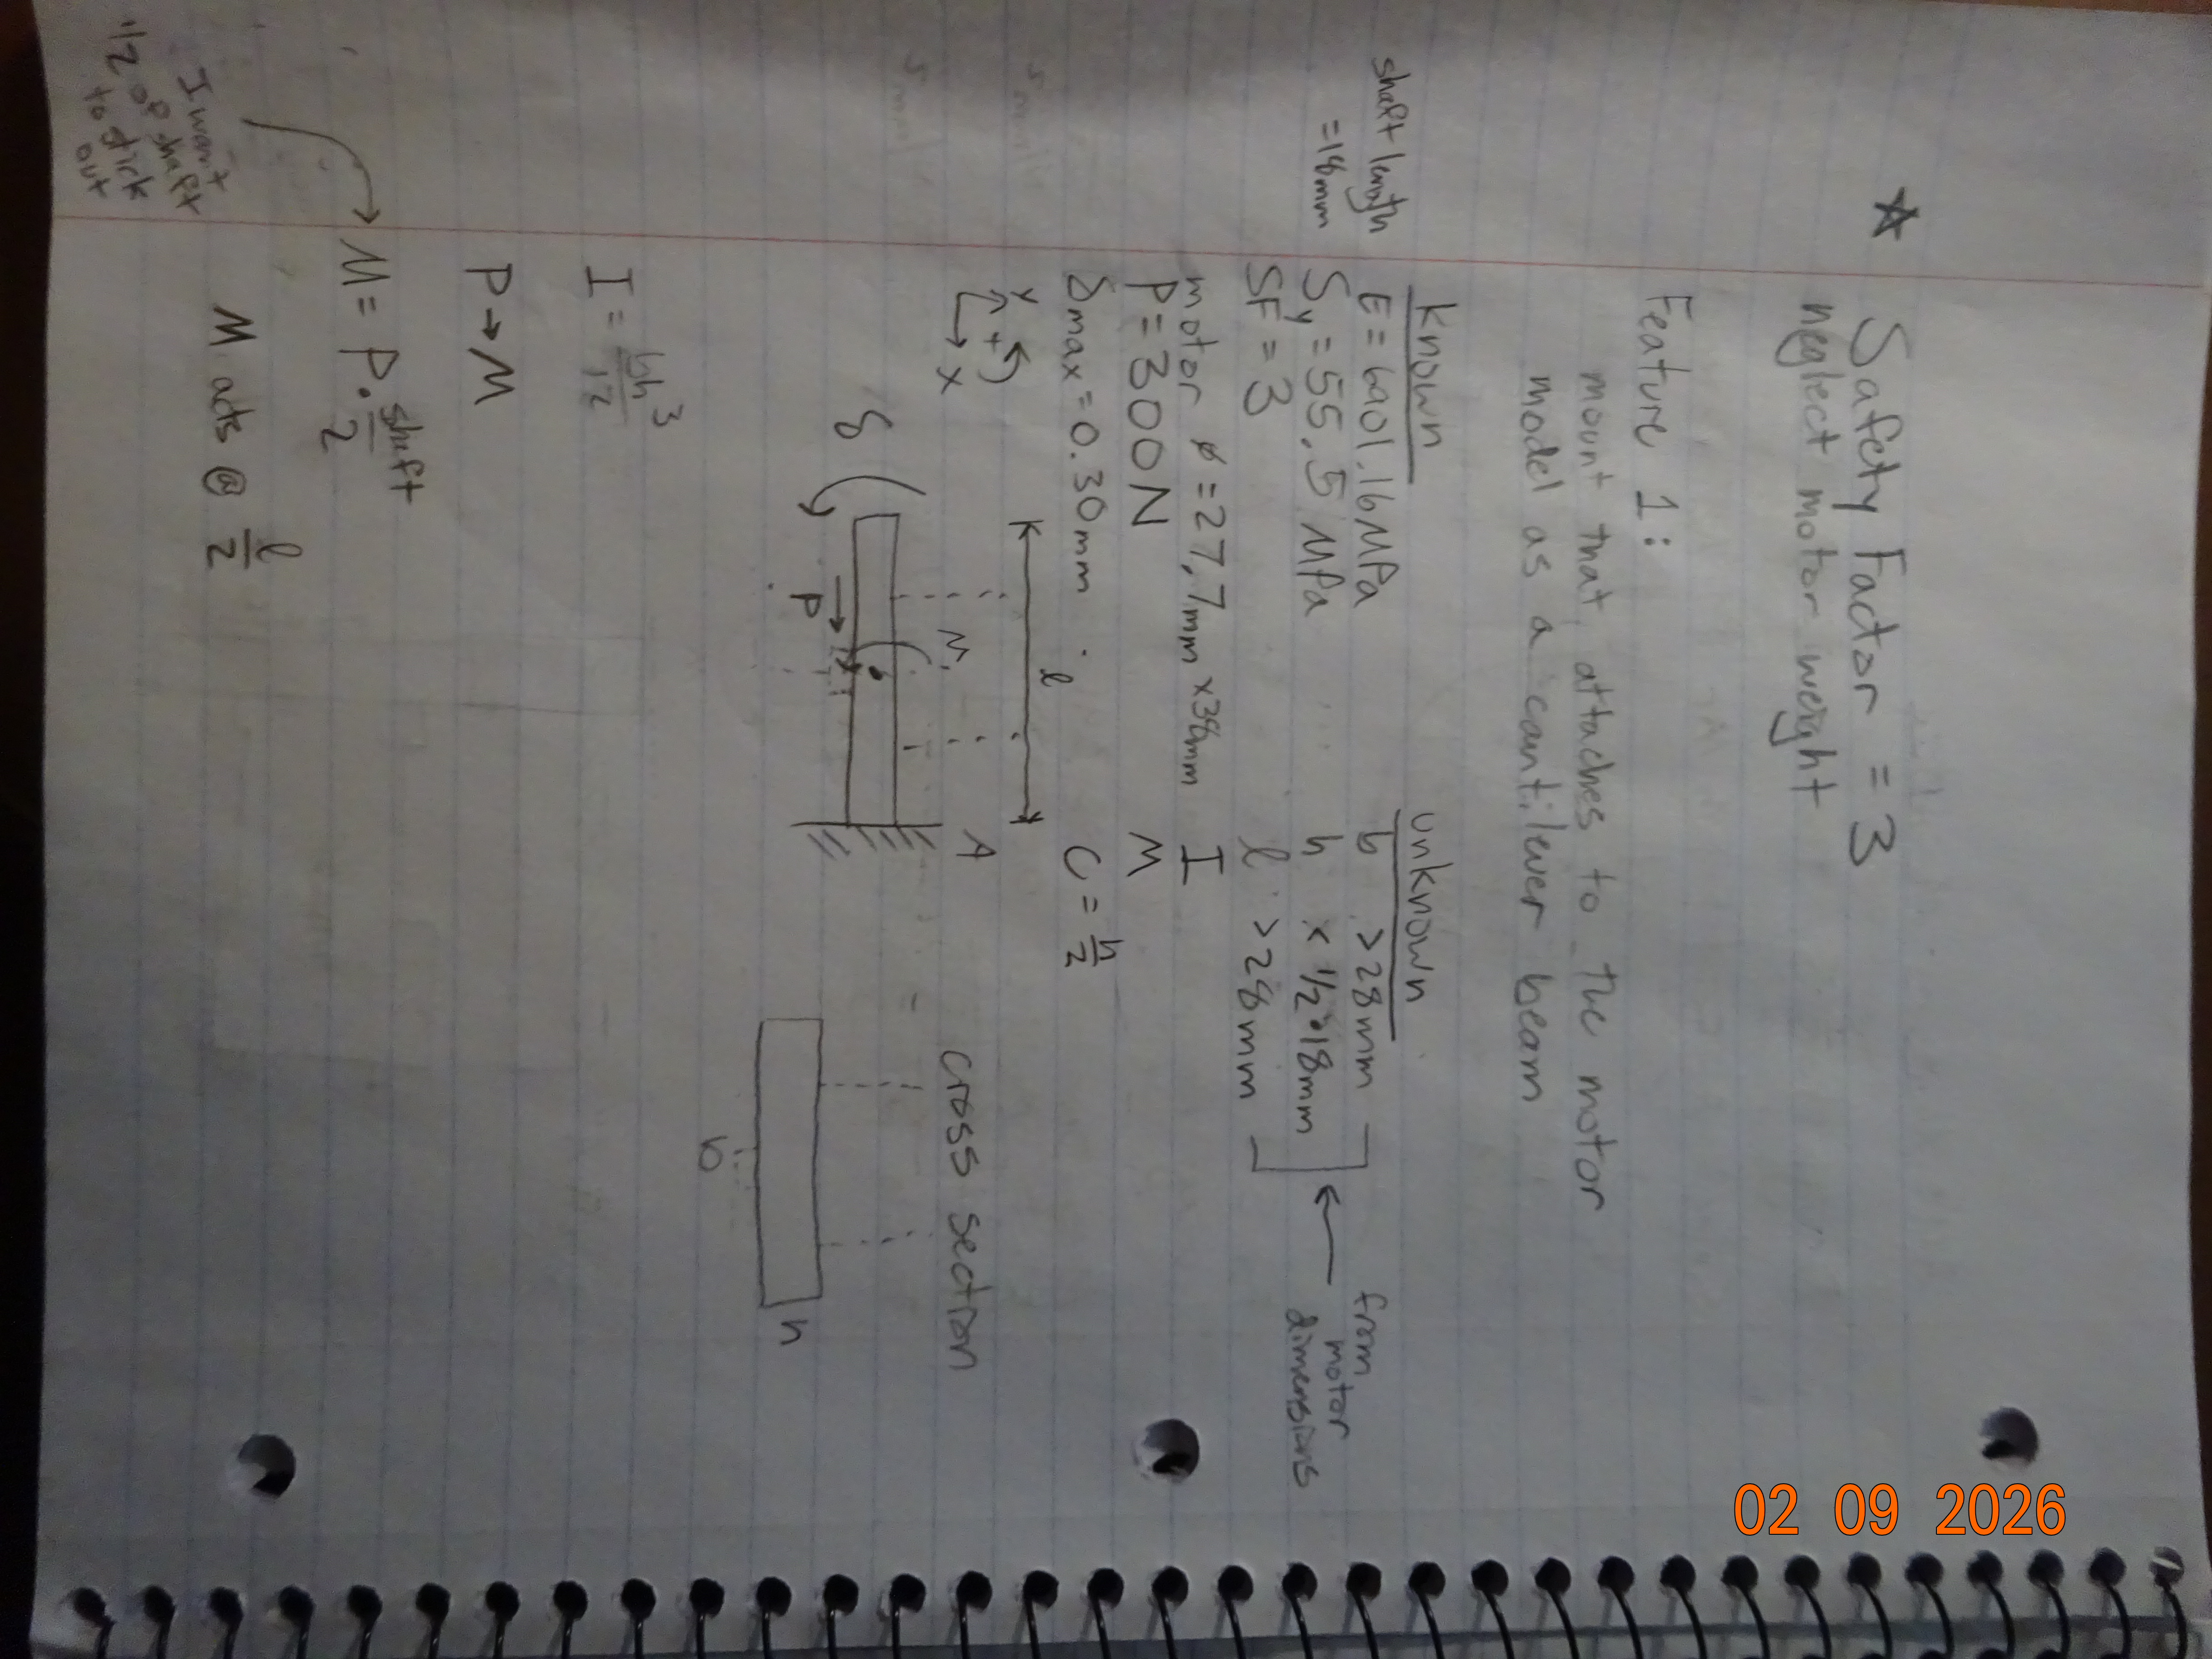 ☆ Safety Factor = 3
neglect motor weight
Feature 1:
mount that attaches to the motor
model as a cantilever beam
Known
shaft length
= 18mm
E = 6901.16MPa
Sy = 55.5 MPa
SF = 3
motor ø = 27.7mm x38mm
P = 300N
δmax = 0.30mm
unknown
b >28mm
h x 1/2•18mm
l >28mm
I
M
C = h/2
from
motor
dimensions
y
+
x
l
M
A
δ
P
cross section
h
b
I = bh³/12
P→M
M = P • shaft/2
I want
1/2 of shaft
to stick
out
M acts @ l/2
02 09 2026